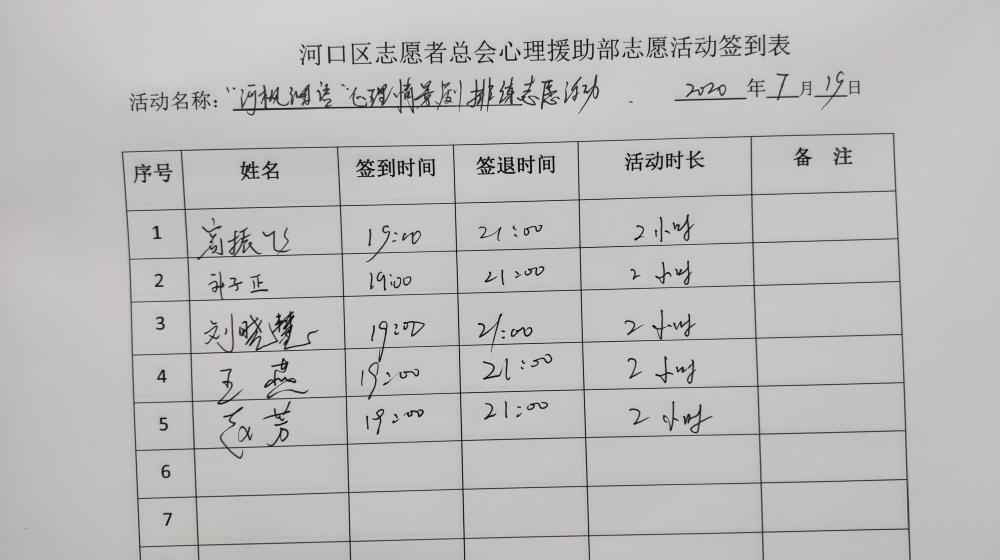 河口区志愿者总会心理援助部志愿活动签到表
活动名称: 心理情景剧排练志愿活动 2020年7月19日
序号 姓名 签到时间 签退时间 活动时长 备 注
1 高振飞 19:00 21:00 2小时
2 子正 19:00 21:00 2小时
3 刘晓慧 19:00 21:00 2小时
4 王燕 19:00 21:00 2小时
5 芳 19:00 21:00 2小时
6
7